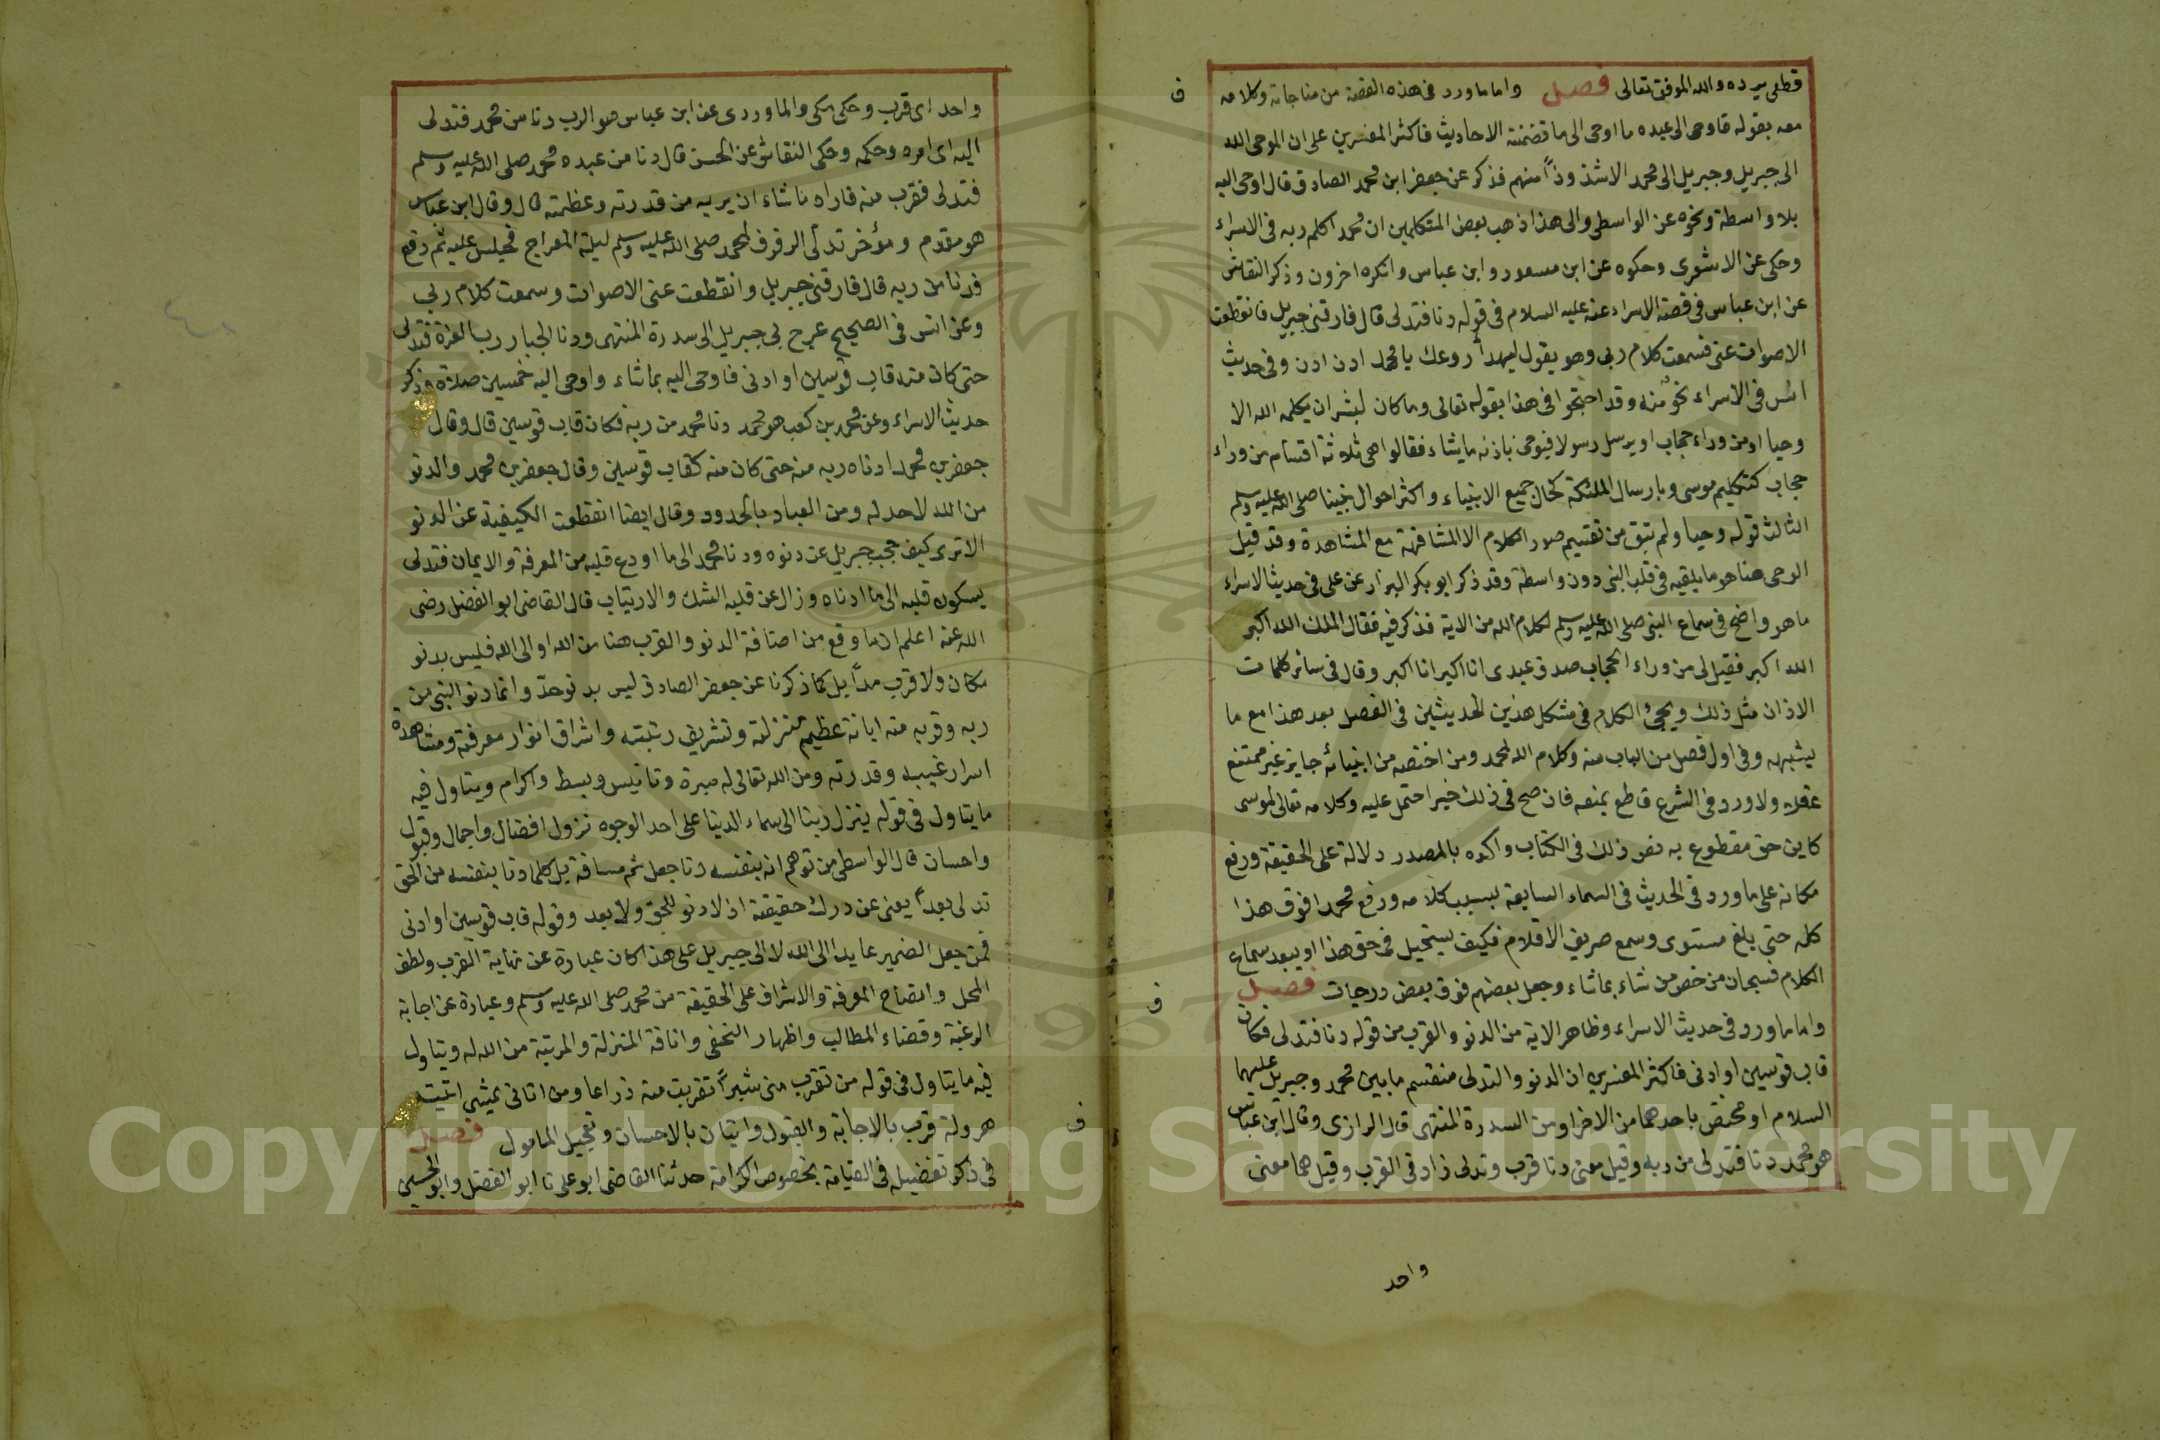 قطعى يرده والله الموفق تعالى فصل واما ما ورد فى هذه القصة من مناجاته وكلامه
معه بقوله فاوحى الى عبده ما اوحى الى ما تضمنته الاحاديث فاكثر المفسرين على ان الموحى الله
الى جبريل وجبريل الى محمد الا شذوذاً منهم فذكر عن جعفر ابن محمد الصادق قال اوحى اليه
بلا واسطة ونحوه عن الواسطى والى هذا ذهب بعض المتكلمين ان محمدا كلم ربه فى الاسراء
وحكى عن الاشعرى وحكوه عن ابن مسعود وابن عباس وانكره اخرون وذكر النقاش
عن ابن عباس فى قصة الاسراء عنه عليه السلام فى قوله دنا فتدلى قال فارقنى جبريل فانقطعت
الاصوات عنى فسمعت كلام ربى وهو يقول ليهدأ روعك يا محمد ادن ادن وفى حديث
انس فى الاسراء نحو منه وقد احتجوا فى هذا بقوله تعالى وما كان لبشر ان يكلمه الله الا
وحيا او من وراء حجاب او يرسل رسولا فيوحى باذنه ما يشاء فقالوا هى ثلاثة اقسام من وراء
حجاب كتكليم موسى وبارسال الملئكة كحال جميع الانبياء واكثر احوال نبينا صلى الله عليه وسلم
الثالث قوله وحيا ولم تبق من تقسيم صور الكلام الا المشافهة مع المشاهدة وقد قيل
الوحى هنا هو ما يلقيه فى قلب النبى دون واسطة وقد ذكر ابو بكر البزار عن على فى حديث الاسراء
ما هو واضح فى سماع النبى صلى الله عليه وسلم لكلام الله من الاية فذكر فيه فقال الملك الله اكبر
الله اكبر فقيل لى من وراء الحجاب صدق عبدى انا اكبر انا اكبر وقال فى سائر كلمات
الاذان مثل ذلك ويجئ الكلام فى مشكل هذين الحديثين فى الفصل بعد هذا مع ما
يشبهه وفى اول فصل من الباب منه وكلام الله لمحمد ومن اختصه من انبيائه جايز غير ممتنع
عقلا ولا ورد فى الشرع قاطع يمنعه فان صح فى ذلك خبر احتمل عليه وكلامه تعالى لموسى
كاين حق مقطوع به نص ذلك فى الكتاب واكده بالمصدر دلالة على الحقيقة ورفع
مكانه على ما ورد فى الحديث فى السماء السابعة بسبب كلامه ورفع محمدا فوق هذا
كله حتى بلغ مستوى وسمع صريف الاقلام فكيف يستحيل فى حق هذا او يبعد سماع
الكلام فسبحان من خص من شاء بما شاء وجعل بعضهم فوق بعض درجات فصل
واما ما ورد فى حديث الاسراء وظاهر الاية من الدنو والقرب من قوله دنا فتدلى فكان
قاب قوسين او ادنى فاكثر المفسرين ان الدنو والتدلى منقسم ما بين محمد وجبريل عليهما
السلام او مختص باحدهما من الاخر او من السدرة المنتهى قال الرازى وقال ابن عباس
هو محمد دنا فتدلى من ربه وقيل معنى دنا قرب وتدلى زاد فى القرب وقيل هما معنى
واحد
ف
ف
واحد اى قرب وحكى مكى والماوردى عن ابن عباس هو الرب دنا من محمد فتدلى
اليه اى امره وحكمه وحكى النقاش عن الحسن قال دنا من عبده محمد صلى الله عليه وسلم
فتدلى فقرب منه فاراه ما شاء ان يريه من قدرته وعظمته قال وقال ابن عباس
هو مقدم ومؤخر تدلى الرفرف لمحمد صلى الله عليه وسلم ليلة المعراج فجلس عليه ثم رفع
فدنا من ربه قال فارقنى جبريل وانقطعت عنى الاصوات وسمعت كلام ربى
وعن انس فى الصحيح عرج بى جبريل الى سدرة المنتهى ودنا الجبار رب العزة فتدلى
حتى كان منه قاب قوسين او ادنى فاوحى اليه بما شاء واوحى اليه خمسين صلاة وذكر
حديث الاسراء وعن محمد بن كعب هو محمد دنا محمد من ربه فكان قاب قوسين قال وقال
جعفر بن محمد ادناه ربه منه حتى كان منه كقاب قوسين وقال جعفر بن محمد والدنو
من الله لا حد له ومن العباد بالحدود وقال ايضا انقطعت الكيفية عن الدنو
الا ترى كيف حجب جبريل عن دنوه ودنا محمد الى ما اودع قلبه من المعرفة والايمان فتدلى
بسكون قلبه الى ما ادناه وزال عن قلبه الشك والارتياب قال القاضى ابو الفضل رضى
الله عنه اعلم ان ما وقع من اضافة الدنو والقرب هنا من الله او الى الله فليس بدنو
مكان ولا قرب مداً بل كما ذكرنا عن جعفر الصادق ليس بدنو حد وانما دنو النبى من
ربه وقربه منه ابانة عظيم منزلته وتشريف رتبته واشراق انوار معرفته ومشاهدة
اسرار غيبه وقدرته ومن الله تعالى له مبرة وتانيس وبسط واكرام ويتاول فيه
ما يتاول فى قوله ينزل ربنا الى سماء الدنيا على احد الوجوه نزول افضال واجمال وقبول
واحسان قال الواسطى من توهم انه بنفسه دنا جعل ثم مسافة بل كلما دنا بنفسه من الحق
تدلى بعداً يعنى عن درك حقيقة اذ لا دنو للحق ولا بعد وقوله قاب قوسين او ادنى
فمن جعل الضمير عايدا الى الله لا الى جبريل على هذا كان عبارة عن نهاية القرب ولطف
المحل وايضاح المعرفة والاشراف على الحقيقة من محمد صلى الله عليه وسلم وعبارة عن اجابة
الرغبة وقضاء المطالب واظهار التحفى وانافة المنزلة والمرتبة من الله له ويتاول
فيه ما يتاول فى قوله من تقرب منى شبراً تقربت منه ذراعا ومن اتانى يمشى اتيته
هرولة قرب بالاجابة والقبول واتيان بالاحسان وتعجيل المامول فصل
فى ذكر تفضيله فى القيامة بخصوص الكرامة حدثنا القاضى ابو على نا ابو الفضل وابو الحسين
ف
٤٠
Copyright © King Saud University
1957